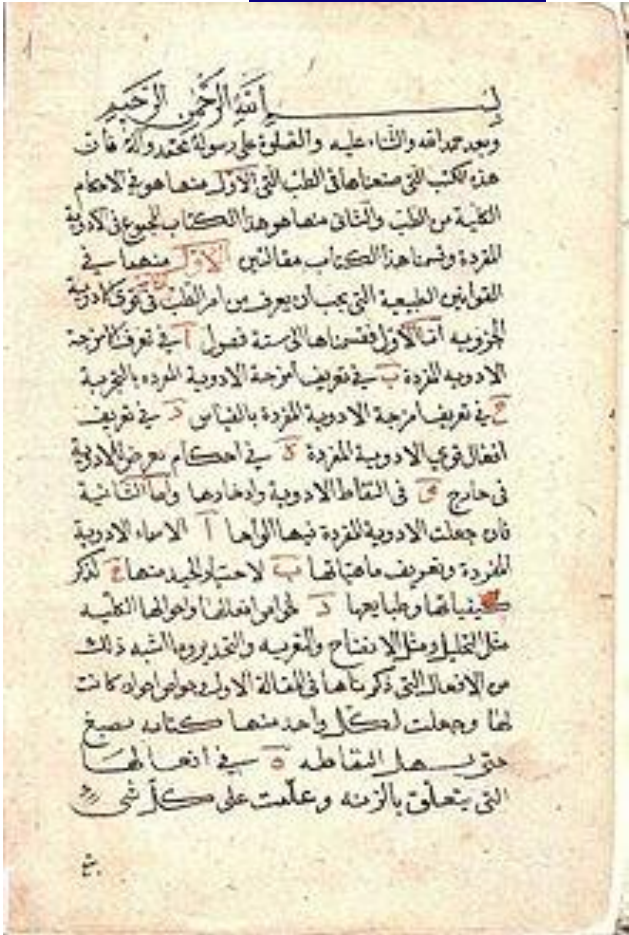 بسم الله الرحمن الرحيم
وبعد حمد الله والثناء عليه والصلوة على رسوله محمد وآله فان
هذه الكتب التي صنعناها في الطب التي الاول منها هو في الاحكام
الكلية من الطب والثاني منها هو هذا الكتاب المجموع في الادوية
المفردة وقسمنا هذا الكتاب مقالتين الاولى منهما في
القوانين الطبيعية التي يجب ان يعرف من امر الطب في قوى الادوية
الجزويه اما الاولى فقسمناها الى ستة فصول آ في تعرف امزجة
الادويه المفردة ب في تعريف امزجة الادوية المفرده بالتجربة
ج في تعريف امزجة الادوية المفردة بالقياس د في تعريف
افعال قوي الادوية المفردة ه في احكام تعرض للادوية
في خارج و في التقاط الادوية وادخارها واما الثانية
فان جعلت الادوية المفردة فيها الواحا آ الاسماء الادوية
المفردة وتعريف ماهياتها ب لاختيار الجيد منها ج لذكر
كيفياتها وطبايعها د لخواص افعالها واحوالها الكلية
مثل التحليل ومثل الانضاج والتغريه والتخدير وما اشبه ذلك
من الافعال التي ذكرناها في المقالة الاولى وخواص اخران كانت
لها وجعلت لكل واحد منها كتابه بصبغ
حتى يسهل التقاطه ه في افعالها
التي يتعلق بالزينه وعلمت على كل شي